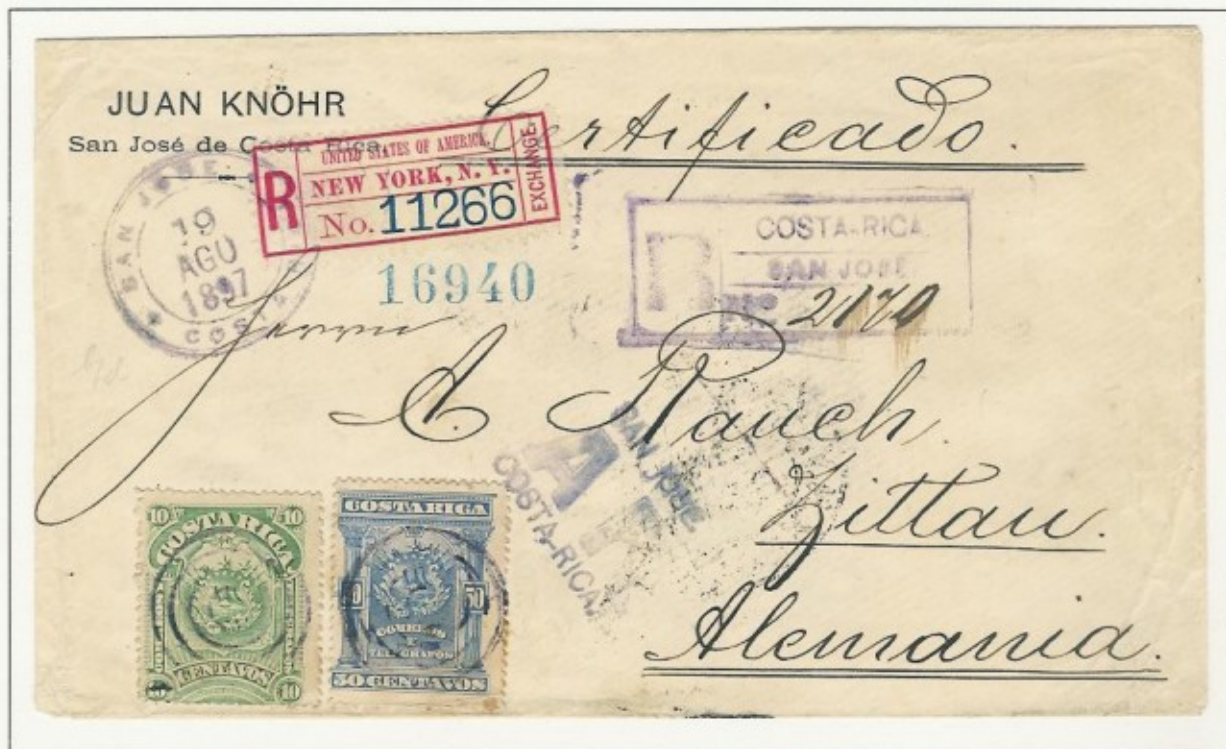 JUAN KNÖHR
San José de Costa Rica.
Certificado.
UNITED STATES OF AMERICA.
R NEW YORK, N. Y.
No. 11266
EXCHANGE.
SAN JOSE
19
AGO
1897
COSTA
16940
COSTA-RICA
R SAN JOSE
No 2170
Herrn
A. Rauch.
Zittau.
Alemania.
SAN JOSE
A
COSTA-RICA
10 10
COSTA RICA
CENTAVOS
10 10
COSTA RICA
50 50
CORREOS
TELEGRAFOS
50 CENTAVOS